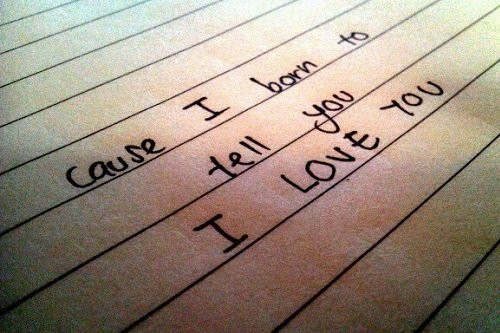 cause I born to
tell you
I LOVE YOU